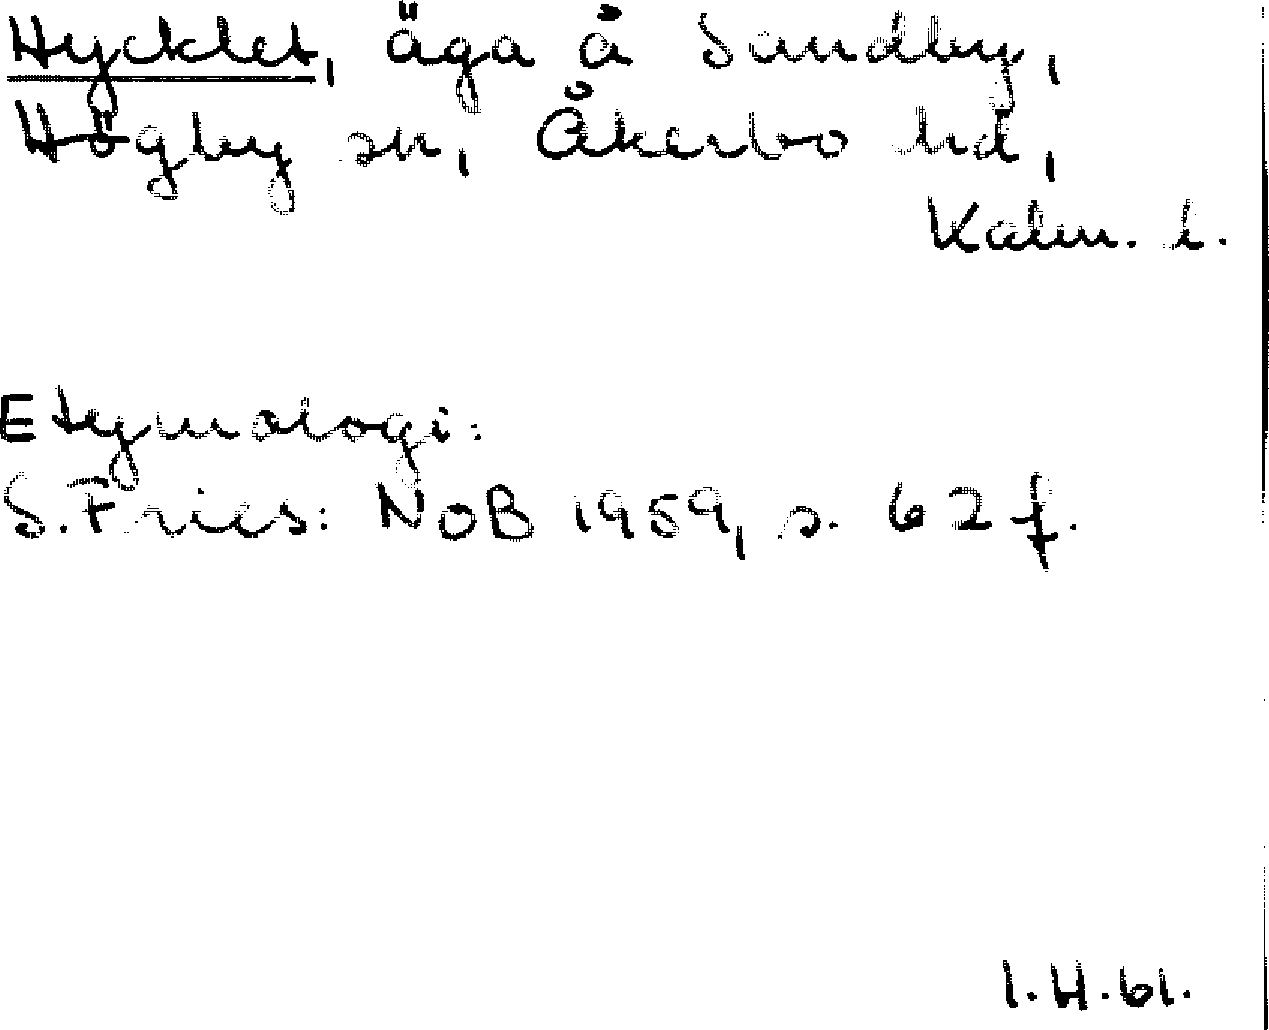 Hycklet, äga å Sandby,
Högby sn, Åkerbo hd,
Kalm. l.
Etymologi:
S. Fries: NOB 1959, s. 62 f.
I.H.61.